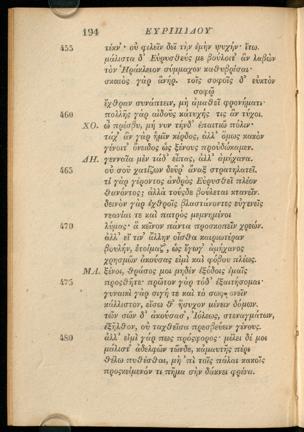 194 ΕΥΡΙΠΙΔΟΥ
455 τέκν'· οὐ φιλεῖν δεῖ τὴν ἐμὴν ψυχήν· ἴτω.
μάλιστα δ' Εὐρυσθεύς με βούλοιτ' ἂν λαβὼν
τὸν Ἡράκλειον σύμμαχον καθυβρίσαι·
σκαιὸς γὰρ ἁνήρ. τοῖς σοφοῖς δ' εὐκτὸν
σοφῷ
ἔχθραν συνάπτειν, μὴ ἀμαθεῖ φρονήματι·
460 πολλῆς γὰρ αἰδοῦς κατυχής τις ἂν τύχοι.
ΧΟ. ὦ πρέσβυ, μή νυν τήνδ' ἐπαιτιῶ πόλιν·
τάχ' ἂν γὰρ ἡμῖν κέρδος, ἀλλ' ὅμως κακὸν
γένοιτ' ὄνειδος ὡς ξένους προὐδώκαμεν.
ΔΗ. γενναῖα μὲν τάδ' εἶπας, ἀλλ' ἀμήχανα.
465 οὐ σοῦ χατίζων δεῦρ' ἄναξ στρατηλατεῖ.
τί γὰρ γέροντος ἀνδρὸς Εὐρυσθεῖ πλέον
θανόντος; ἀλλὰ τούσδε βούλεται κτανεῖν.
δεινὸν γὰρ ἐχθροῖς βλαστάνοντες εὐγενεῖς
νεανίαι τε καὶ πατρὸς μεμνημένοι
470 λύμας· ἃ κεῖνον πάντα προσκοπεῖν χρεών.
ἀλλ' εἴ τιν' ἄλλην οἶσθα καιριωτέραν
βουλήν, ἑτοίμαζ', ὡς ἔγωγ' ἀμήχανος
χρησμῶν ἀκούσας εἰμὶ καὶ φόβου πλέως.
ΜΑ. ξένοι, θράσος μοι μηδὲν ἐξόδοις ἐμαῖς
475 προσθῆτε· πρῶτον γὰρ τόδ' ἐξαιτήσομαι·
γυναικὶ γὰρ σιγή τε καὶ τὸ σωφρονεῖν
κάλλιστον, εἴσω θ' ἥσυχον μένειν δόμων.
τῶν σῶν δ' ἀκούσασ', Ἰόλεως, στεναγμάτων,
ἐξῆλθον, οὐ ταχθεῖσα πρεσβεύειν γένους.
480 ἀλλ' εἰμὶ γάρ πως πρόσφορος· μέλει δέ μοι
μάλιστ' ἀδελφῶν τῶνδε, κἀμαυτῆς πέρι
θέλω πυθέσθαι, μὴ 'πὶ τοῖς πάλαι κακοῖς
προσκείμενόν τι πῆμα σὴν δάκνει φρένα.